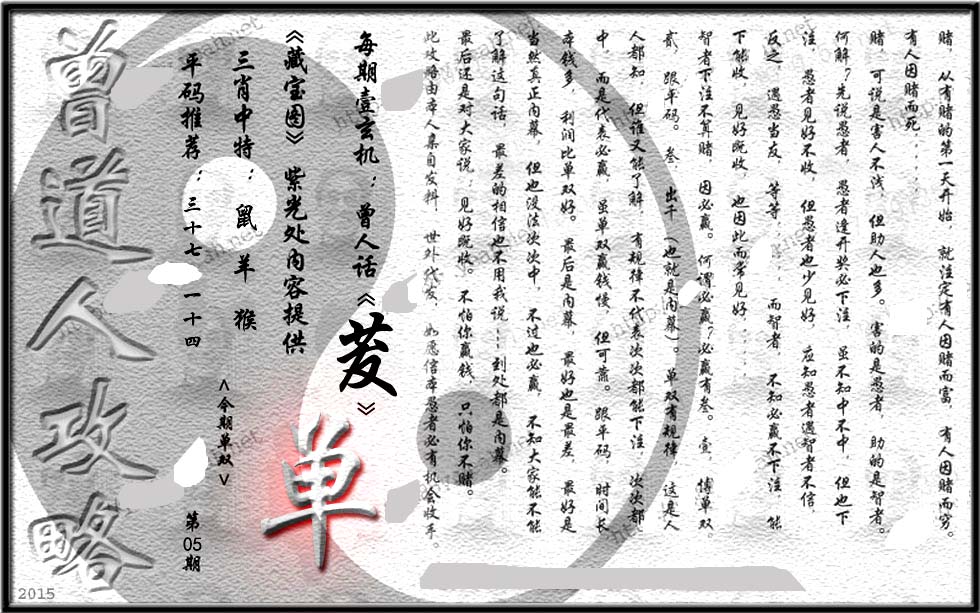 赌, 从有赌的第一天开始, 就注定有人因赌而富, 有人因赌而穷。
有人因赌而死......
赌, 可说是害人不浅, 但助人也多。 害的是愚者, 助的是智者。
何解?先说愚者, 愚者逢开奖必下注, 虽不知中不中, 但也下
注, 愚者见好不收, 但愚者也少见好, 应知愚者遇智者不信,
反之, 遇愚当友, 等等..... 而智者, 不知必赢不下注, 能
下能收, 见好既收, 也因此而常见好.....
智者下注不算赌, 因必赢。 何谓必赢?必赢有叁。 壹, 傅单双,
贰, 跟平码。 叁, 出千 (也就是内幕)。 单双有规律, 这是人
人都知, 但谁又能了解, 有规律不代表次次都能下注, 次次都
中, 而是代表必赢, 虽单双赢钱慢, 但可靠。 跟平码, 时间长,
本钱多, 利润比单双好。 最后是内幕, 最好也是最差, 最好是
当然真正内幕, 但也没法次次中, 不过也必赢, 不知大家能不能
了解这句话, 最差的相信也不用我说......到处都是内幕。
最后还是对大家说:见好既收。不怕你赢钱, 只怕你不赌。
此攻略由本人亲自发料, 世外代发, 如愿信本愚者必有机会收手。
每期壹玄机: 曾人话《茇》
《藏宝图》 紫光处内容提供
三肖中特: 鼠 羊 猴
平码推荐: 三十七 一十四
<今期单双>
单
第05期
曾道人攻略
2015
hhpeah.net